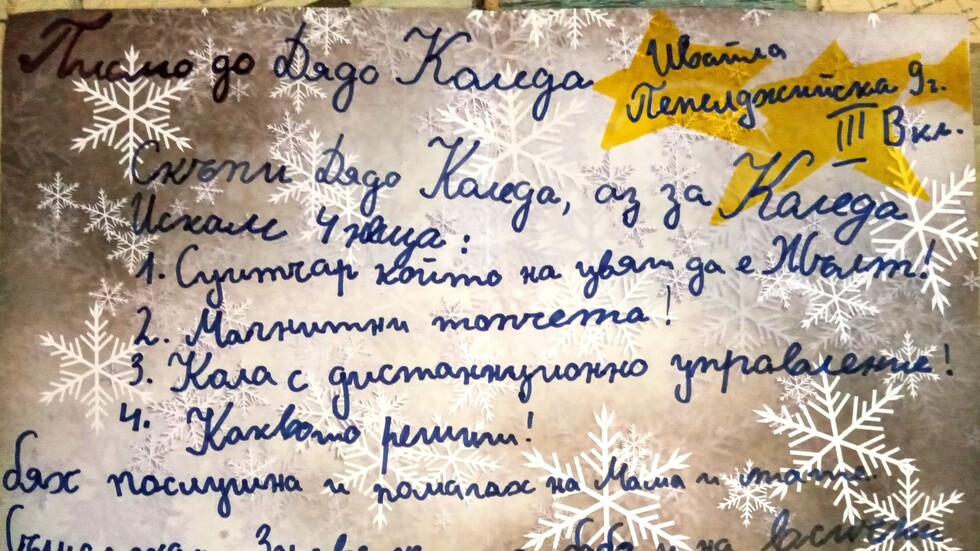 Писмо до Дядо Коледа
Ивайла
Пепелджийска 9г.
III В кл.
Скъпи Дядо Коледа, аз за Коледа
Искаме 4 неща:
1. Суитчар който на цвят да е Жълт!
2. Магнитни топчета!
3. Кола с дистаннционно управление!
4. Каквото решиш!
бях послушна и помагах на Мама и тати.
и на всички